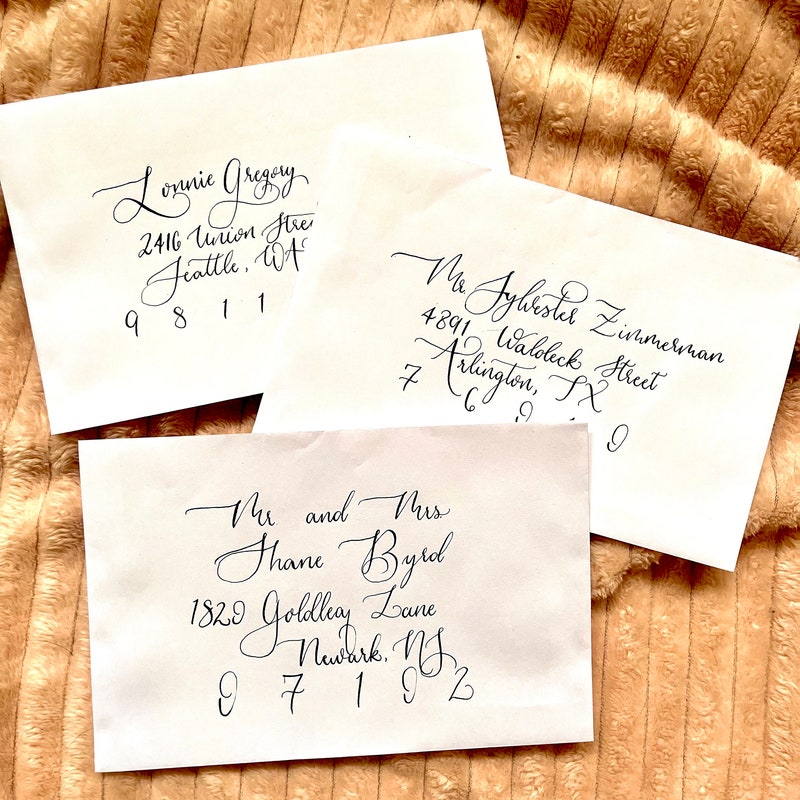 Lonnie Gregory
2416 Union Stree
Seattle, WA
9 8 1 1
Mr. Sylvester Zimmerman
4891 Waldeck Street
Arlington, TX
7 6 0 1 0
Mr. and Mrs.
Shane Byrd
1820 Goldleaf Lane
Newark, NJ
0 7 1 0 2